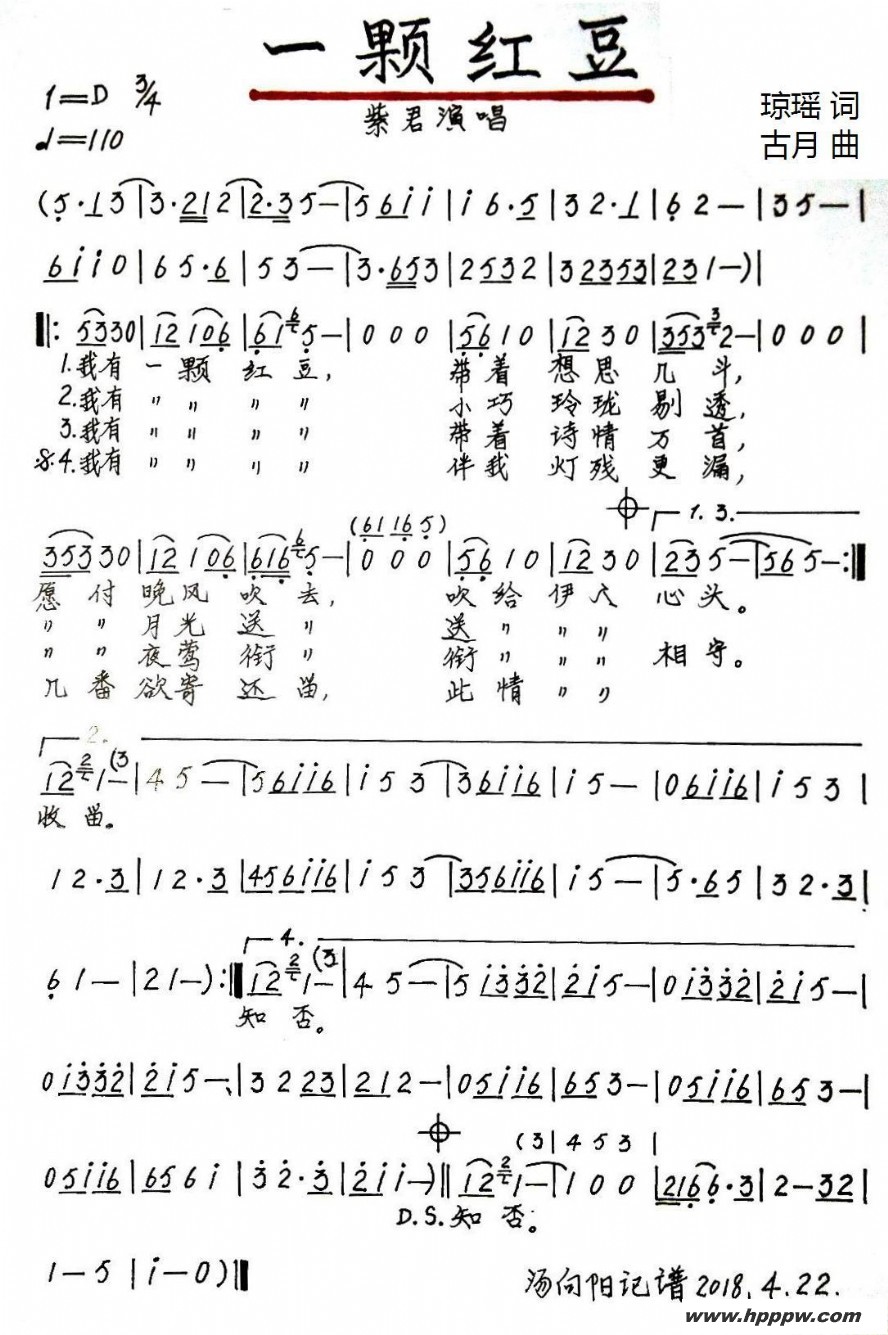 一颗红豆
1=D 3/4
♩=110
紫君演唱
琼瑶 词
古月 曲
(5·13|3·212|2·35—|56ii|i6·5|32·1|62—|35—|
6ii0|65·6|53—|3·653|25332|32353|231—)|
‖:53330|12106|6165—|000|5610|1230|35332—|000|
1.我有一颗红豆, 带着想思几斗,
2.我有〃〃〃〃 小巧玲珑剔透,
3.我有〃〃〃〃 带着诗情万首,
:8:4.我有〃〃〃〃 伴我灯残更漏,
(61 16 5) 1.3.
35330|12106|61665—|000|5610|1230|235—|565—:‖
愿付晚风吹去, 吹给伊人心头。
〃〃月光送〃 送〃〃〃
〃〃夜莺衔〃 衔〃〃〃 相守。
几番欲寄还留, 此情〃〃
2.
1221—(3|45—|56iii6|i53|36iii6|i5—|06ii6|i53|
收留。
12·3|12·3|456ii6|i53|356ii6|i5—|5·65|32·3|
4.
61—|21—):‖1221—(3|45—|5i332|2i5—|0i332|2i5—|
知否。
0i332|2i5—|3223|212—|05ii6|653—|05ii6|653—|
(3|453|
05ii6|656i|32·3|2ii—)‖1221—|100|2166·3|2—32|
D.S.知否。
1—5|i—0)‖
汤向阳记谱2018.4.22.
www.hpppw.com